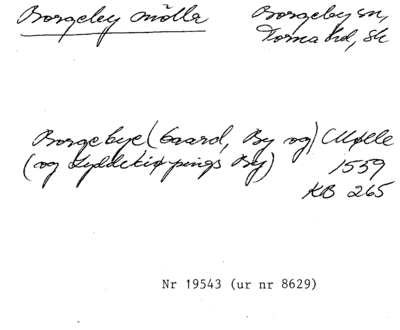 Borgeby mölla Borgeby sn,
Torna hd, Sk
Borgebye (Gaard, By og) Mølle
(og Lyddekiøpings By) 1559
KB 265
Nr 19543 (ur nr 8629)